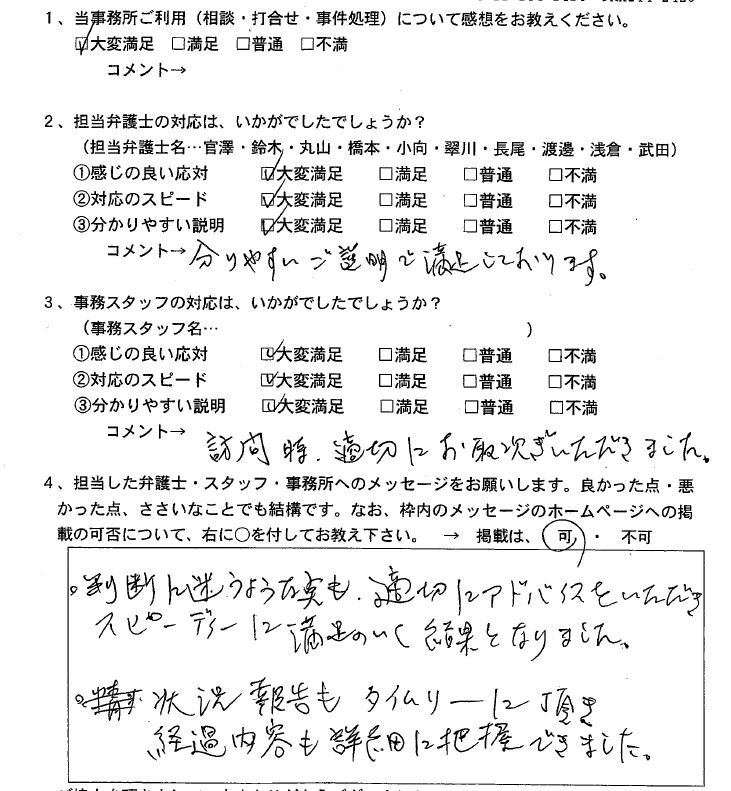 1、当事務所ご利用（相談・打合せ・事件処理）について感想をお教えください。
☑大変満足 □満足 □普通 □不満
コメント→
2、担当弁護士の対応は、いかがでしたでしょうか？
（担当弁護士名…官澤・鈴木・丸山・橋本・小向・翠川・長尾・渡邊・浅倉・武田）
①感じの良い応対 ☑大変満足 □満足 □普通 □不満
②対応のスピード ☑大変満足 □満足 □普通 □不満
③分かりやすい説明 ☑大変満足 □満足 □普通 □不満
コメント→ 分りやすいご説明で満足しております。
3、事務スタッフの対応は、いかがでしたでしょうか？
（事務スタッフ名… ）
①感じの良い応対 ☑大変満足 □満足 □普通 □不満
②対応のスピード ☑大変満足 □満足 □普通 □不満
③分かりやすい説明 ☑大変満足 □満足 □普通 □不満
コメント→ 訪問時、適切にお取次ぎいただきました。
4、担当した弁護士・スタッフ・事務所へのメッセージをお願いします。良かった点・悪
かった点、ささいなことでも結構です。なお、枠内のメッセージのホームページへの掲
載の可否について、右に○を付してお教え下さい。 → 掲載は、可・ 不可
。判断に迷うような実も、適切にアドバイスをいただき
スピーディーに満足のいく結果となりました。
。状況報告もタイムリーに頂き
経過内容も詳細に把握できました。